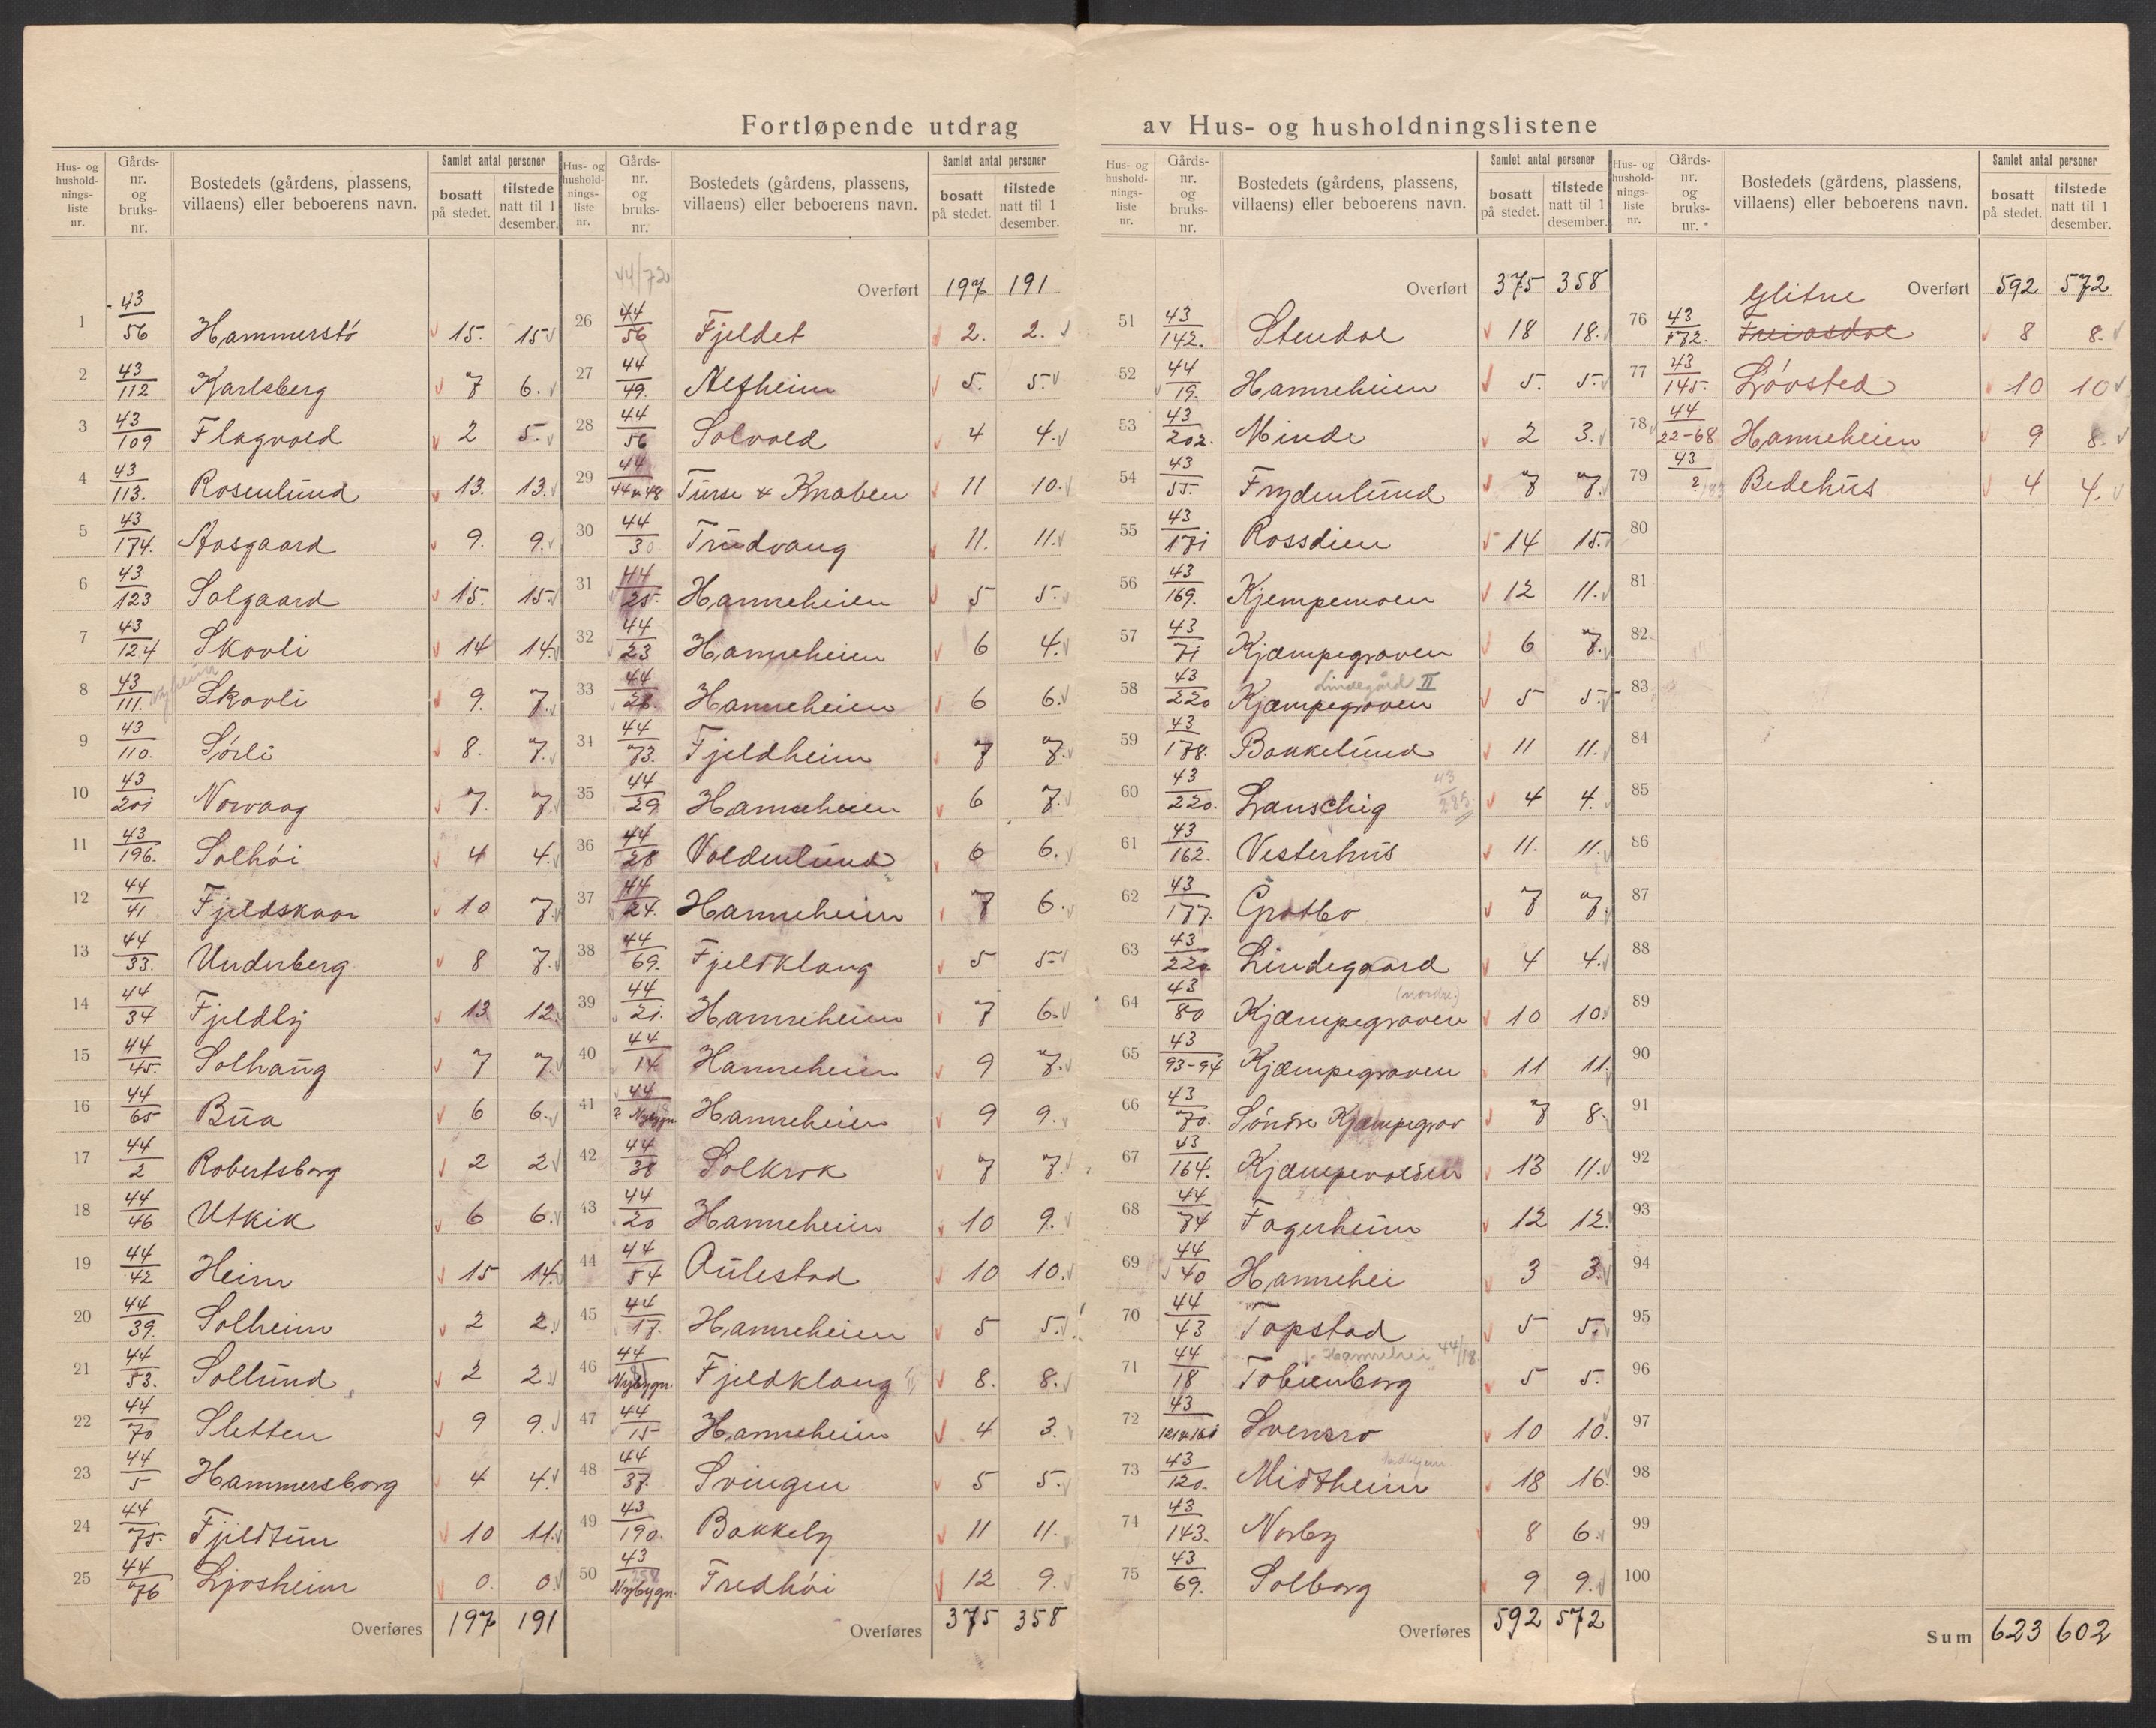 Fortløpende utdrag av Hus- og husholdningslistene
Hus- og husholdnings- liste nr. | Gårds- nr. og bruks- nr. | Bostedets (gårdens, plassens, villaens) eller beboerens navn. | Samlet antal personer bosatt på stedet. | tilstede natt til 1 desember.
1 43/56 Hammerstö 15. 15
2 43/112 Karlsberg 7 6.
3 43/109 Flagvold 2 5.
4 43/113. Rosenlund 13. 13.
5 43/174. Aasgaard 9. 9.
6 43/123 Solgaard 15. 15
7 43/124 Skovli 14 14
8 43/111. Skovli 9. 7.
9 43/110. Sörli 8. 7.
10 43/201 Norvaag 7. 7.
11 43/196. Solhöi 4 4.
12 44/41 Fjeldskaar 10 7.
13 44/33. Underberg 8 7.
14 44/34 Fjeldby 13 12
15 44/45. Solhaug 7 7.
16 44/65 Bua 6 6.
17 44/2 Robertsborg 2 2
18 44/46 Utkik 6 6.
19 44/42 Heim 15 14.
20 44/39. Solheim 2 2.
21 44/53. Sollund 2 2.
22 44/70 Sletten 9 9.
23 44/5 Hammersborg 4 4.
24 44/75. Fjeldtun 10 11.
25 44/76 Ljosheim 0. 0
Overføres 197 191
Hus- og husholdnings- liste nr. | Gårds- nr. og bruks- nr. | Bostedets (gårdens, plassens, villaens) eller beboerens navn. | Samlet antal personer bosatt på stedet. | tilstede natt til 1 desember.
44/720
Overført 197 191
26 44/56 Fjeldet 2. 2.
27 44/49. Alfheim 5. 5.
28 44/56 Solvold 4 4.
29 44/44 & 48 Turse & Knaben 11 10.
30 44/30 Trudvang 11. 11.
31 44/25. Hanneheien 5 5.
32 44/23 Hanneheien 6 4.
33 44/26. Hanneheien 6 6.
34 44/73. Fjeldheim 7 7.
35 44/29 Hanneheien 6 7.
36 44/28 Voldenlund 6 6.
37 44/24. Hanneheien 7 6.
38 44/69. Fjeldklang 5 5.
39 44/21. Hanneheien 7 6.
40 44/14 Hanneheien 9 7.
41 44/? Nybygn. Hanneheien 9 9.
42 44/38 Solkrok 7 7.
43 44/20 Hanneheien 10 9.
44 44/54 Aulestad 10 10.
45 44/17. Hanneheien 5 5.
46 44/Nybygn. Fjeldklang 8. 8.
47 44/15 Hanneheien 4 3.
48 44/37. Svingen 5 5.
49 43/190. Bakkeby 11 11.
50 43/Nybygn. Fredhöi 12 9.
Overføres 375 358
Hus- og husholdnings- liste nr. | Gårds- nr. og bruks- nr. | Bostedets (gårdens, plassens, villaens) eller beboerens navn. | Samlet antal personer bosatt på stedet. | tilstede natt til 1 desember.
Overført 375 358
51 43/142. Stendal 18 18.
52 44/19. Hanneheien 5. 5.
53 43/202. Minde 2 3.
54 43/55. Frydenlund 7 7.
55 43/171 Rossdien 14 15.
56 43/169. Kjempemoen 12 11.
57 43/71 Kjæmpegraven 6 7.
Lindegård II
58 43/220 Kjæmpegraven 5 5.
59 43/178. Bakkelund 11 11.
60 43/220. Lauschig 43/285. 4 4.
61 43/162. Vesterhus 11. 11.
62 43/177. Grotbo 7 7.
63 43/220. Lindegaard 4 4.
(nordre)
64 43/80 Kjæmpegraven 10 10.
65 43/93-94 Kjæmpegraven 11 11.
66 43/70. Söndre Kjæmpegrav 7 8.
67 43/164. Kjæmpevolden 13 11.
68 44/74 Fagerheim 12 12.
69 44/40 Hannehei 3 3.
70 44/43 Topstad 5 5.
Hannehei 44/18.
71 44/18 Tobienborg 5 5.
72 43/121 & 161 Svensro 10 10.
73 43/120. Midtheim 18 16.
74 43/143. Norby 8 6.
75 43/69. Solborg 9 9.
Overføres 592 572
Hus- og husholdnings- liste nr. | Gårds- nr. og bruks- nr. | Bostedets (gårdens, plassens, villaens) eller beboerens navn. | Samlet antal personer bosatt på stedet. | tilstede natt til 1 desember.
Overført 592 572
Glitne
76 43/172. 8 8.
77 43/145. Lövsted 10 10
78 44/22-68 Hanneheien 9 8.
79 43/? 183 Bedehus 4 4.
80
81
82
83
84
85
86
87
88
89
90
91
92
93
94
95
96
97
98
99
100
Sum 623 602